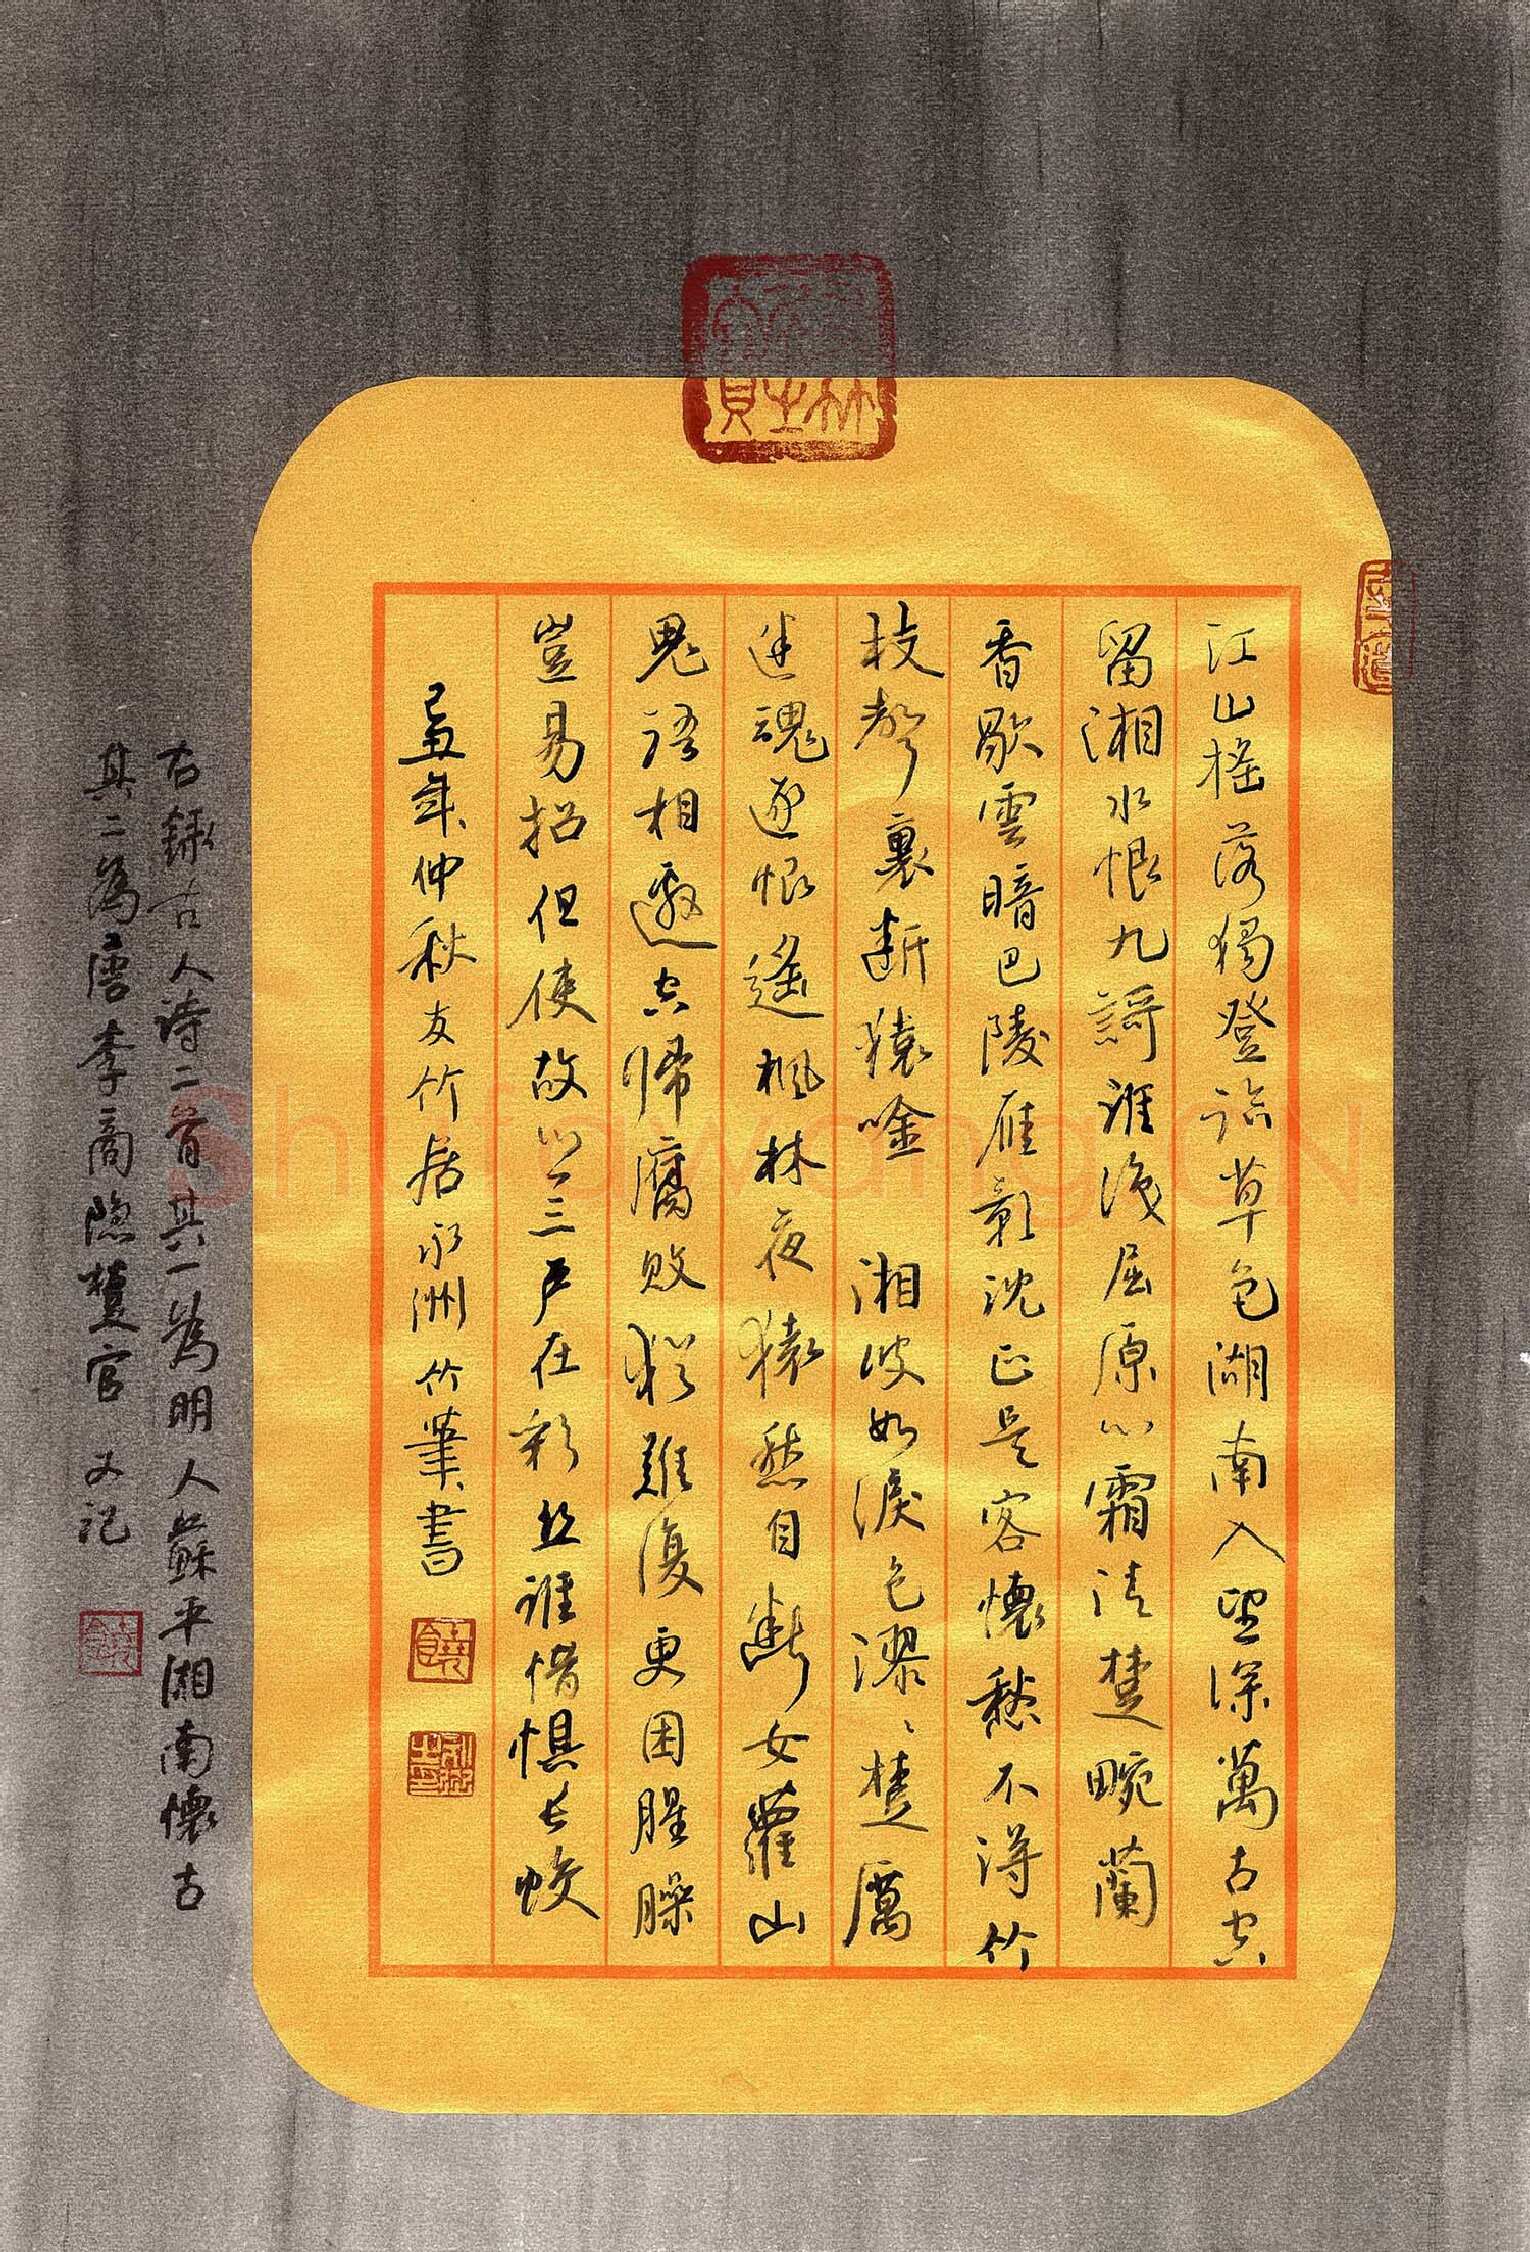 江山榣落獨登臨草色湖南入望深萬古空
留湘水恨九謌誰屈原心霜清楚畹蘭
香歇雲暗巴陵雁影沈正是客懷愁不得竹
枝聲裏斷猿唫 湘波如淚色漻〻楚厲
迷魂逐恨遙楓林夜猿愁自斷女蘿山
鬼語相邀空歸腐敗猶難復更困腥臊
豈易招但使故鄉三戶在彩絲誰惜懼長蛟
年仲秋友竹居永洲竹筆書
右錄古人詩二首其一為明人蘇平湘南懷古
其二為唐李商隱楚宮 又記
Shufawang.CN